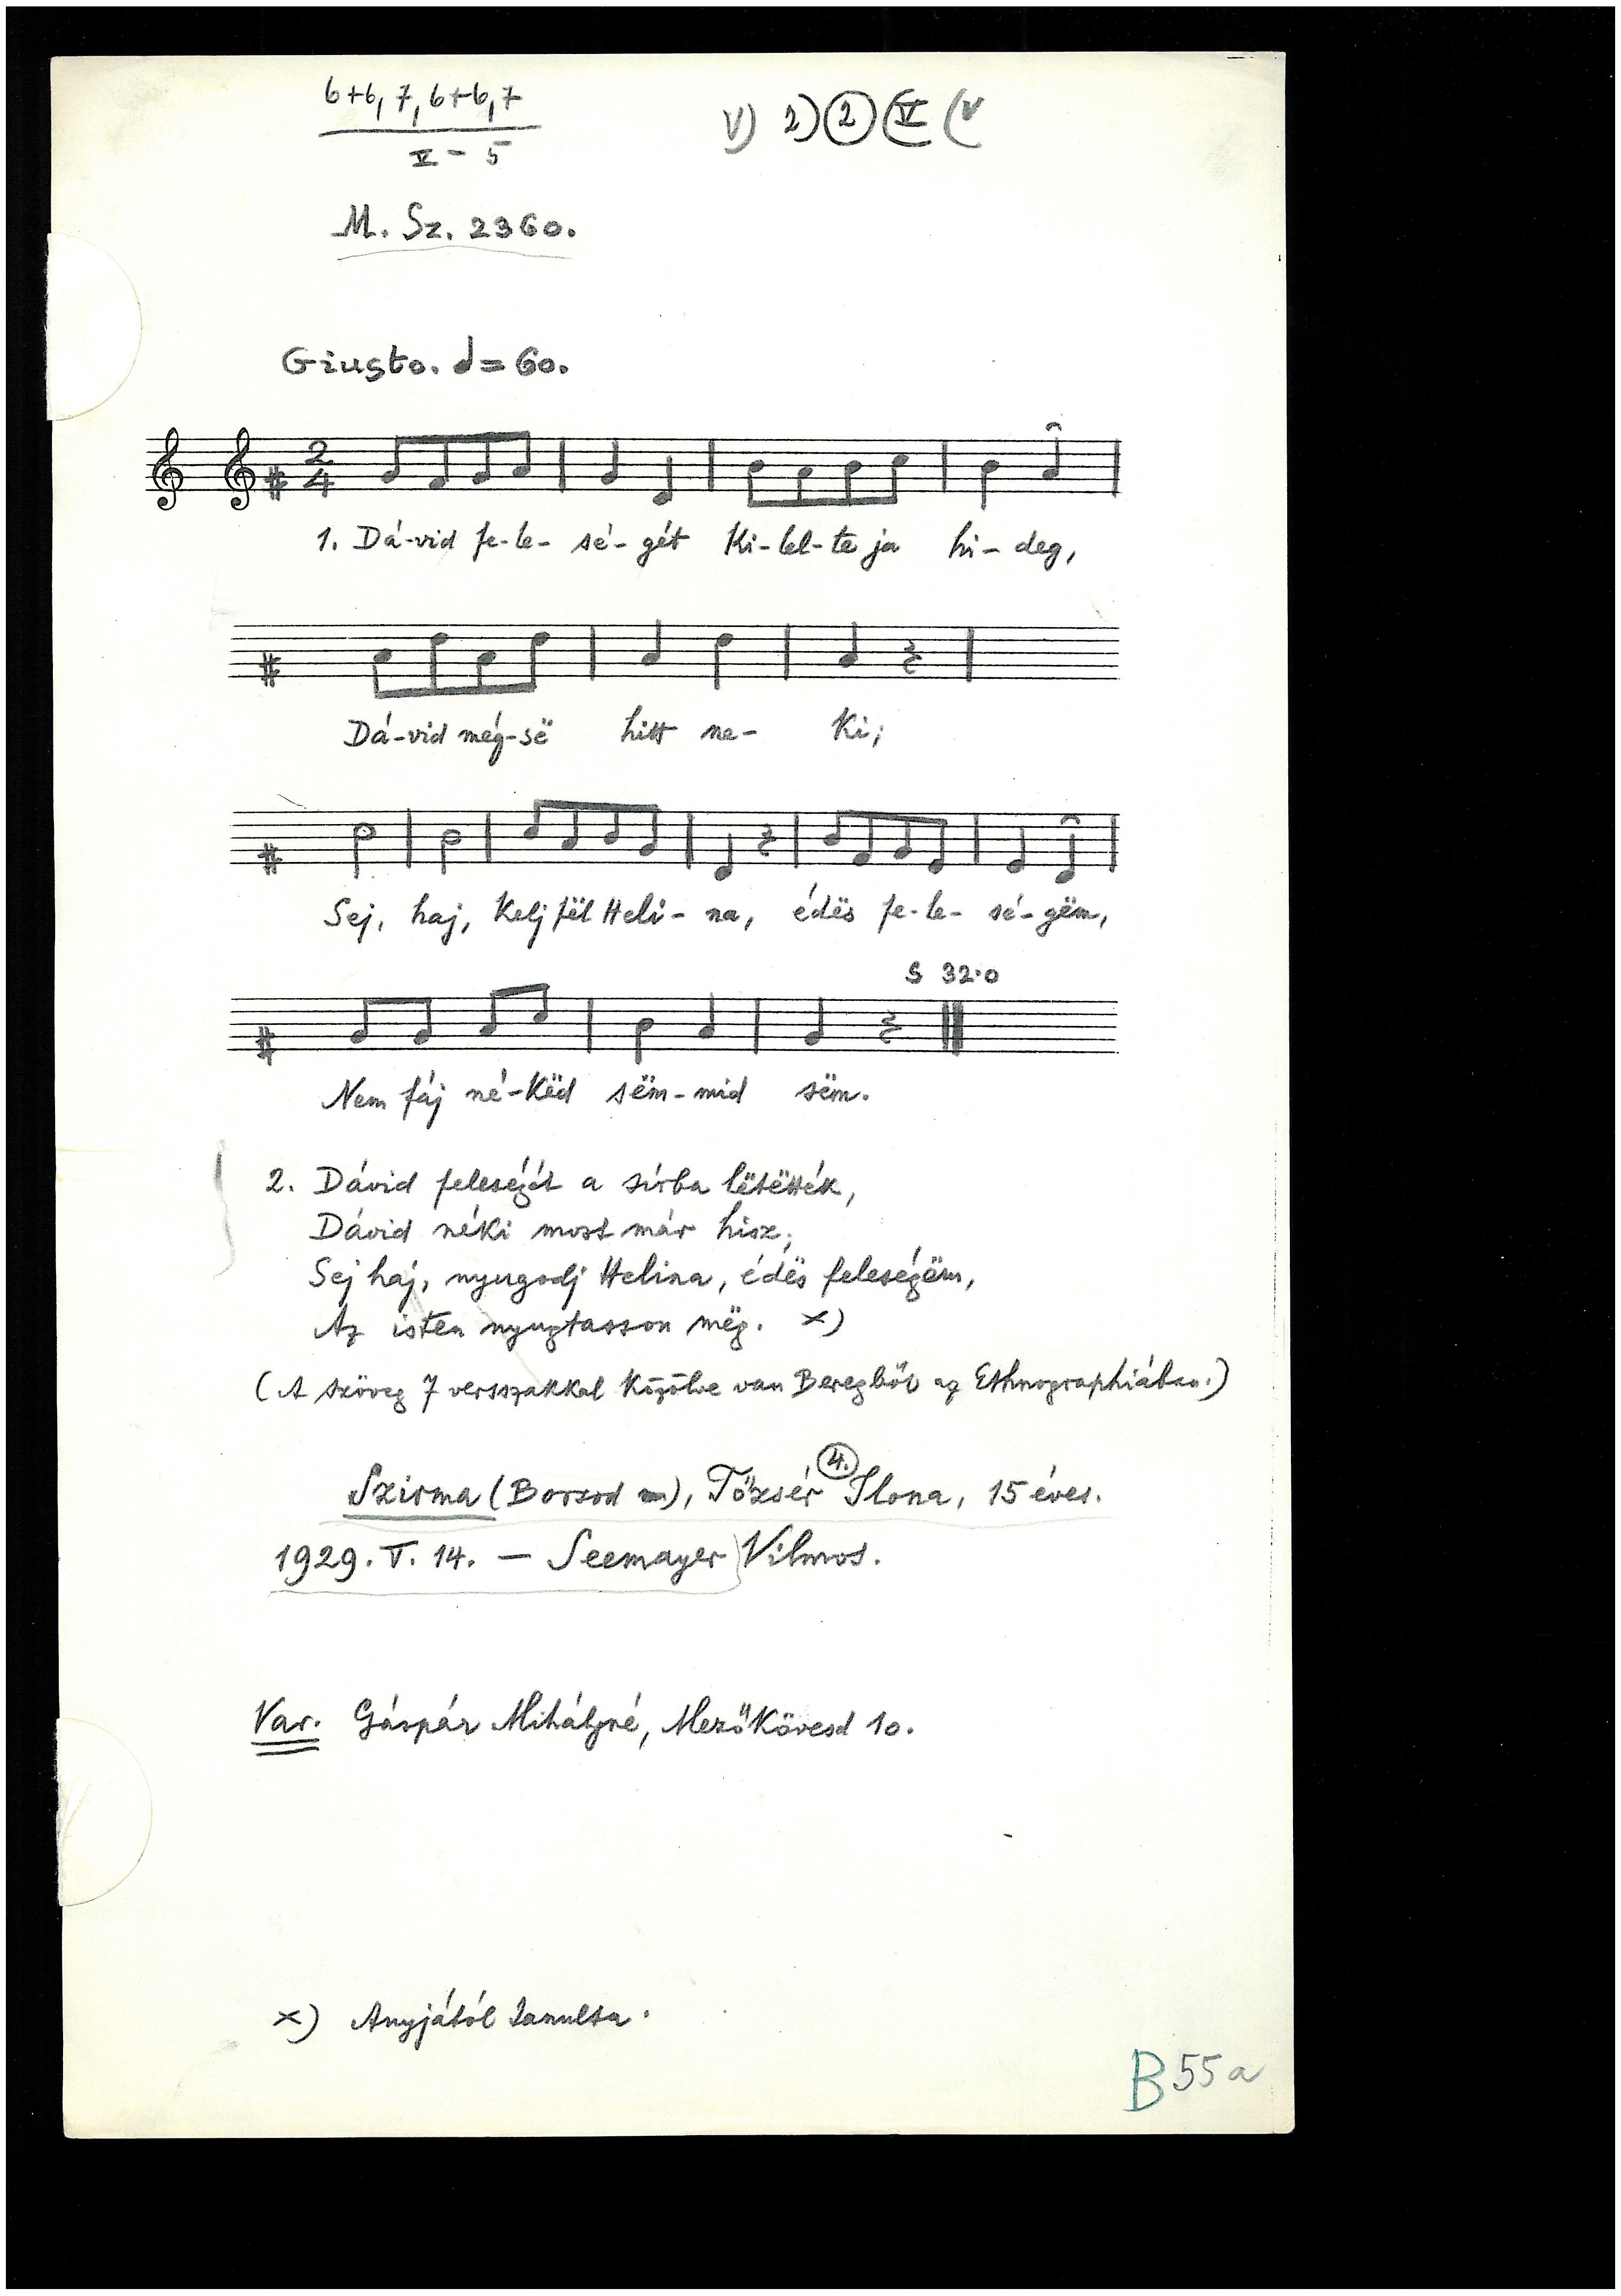 6+6, 7, 6+6, 7
V - 5
V) 2) (2) (V (V
M. Sz. 2360.
Giusto. d = 60.
2/4
1. Dá-vid fe-le- sé-gét Ki-lel-te ja hi-deg,
Dá-vid még-së hitt ne- ki;
Sej, haj, kelj fël Heli- na, édës fe-le- sé-gëm,
S 32·0
Nem fáj né-këd sëm-mid sëm.
2. Dávid feleségét a sírba lëtëtték,
Dávid néki most már hisz;
Sej haj, nyugodj Helina, édës feleségëm,
Az isten nyugtasson mëg. x)
(A szöveg 7 versszakkal közölve van Beregből az Ethnographiában.)
Szirma (Borsod m), Tőzsér Ilona, 15 éves.
4.
1929. V. 14. — Seemayer Vilmos.
Var. Gáspár Mihályné, Mezőkövesd 10.
x) Anyjától tanulta.
B 55a